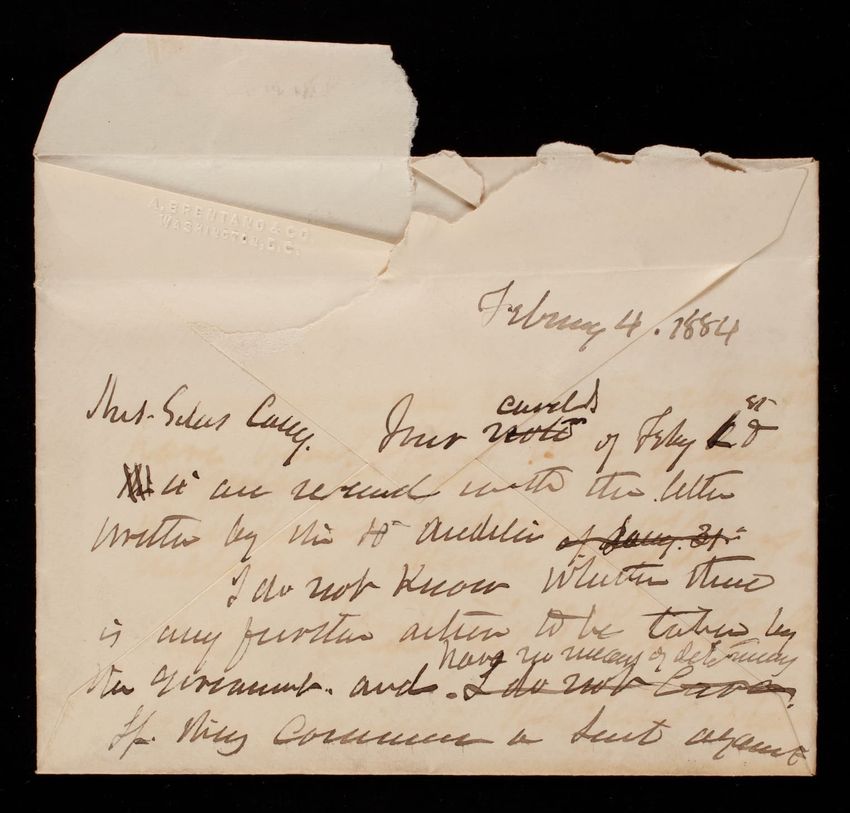 A. BRENTANO & CO.
WASHINGTON, D.C.
February 4. 1884
Mrs. Silas Casey. Your note cards of Feby 1st
are received with the letter
written by the 2d Auditor of Jany. 31st
I do not know whether there
is any further action to be taken by
have no means of determining
the government. and I do not Care.
If they commence a suit against